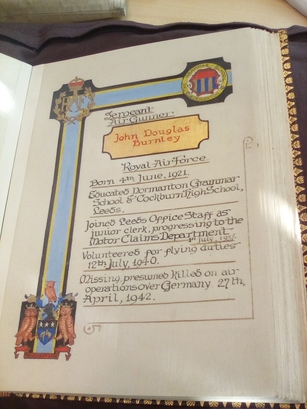 Sergeant
Air Gunner
John Douglas
Burnley
Royal Air Force
Born 4th June, 1921.
Educated Normanton Grammar
School & Cockburn High School,
Leeds.
Joined Leeds Office Staff as
junior clerk, progressing to the
Motor Claims Department
Volunteered for flying duties
12th July, 1940.
Missing, presumed killed on air
operations over Germany 27th
April, 1942.